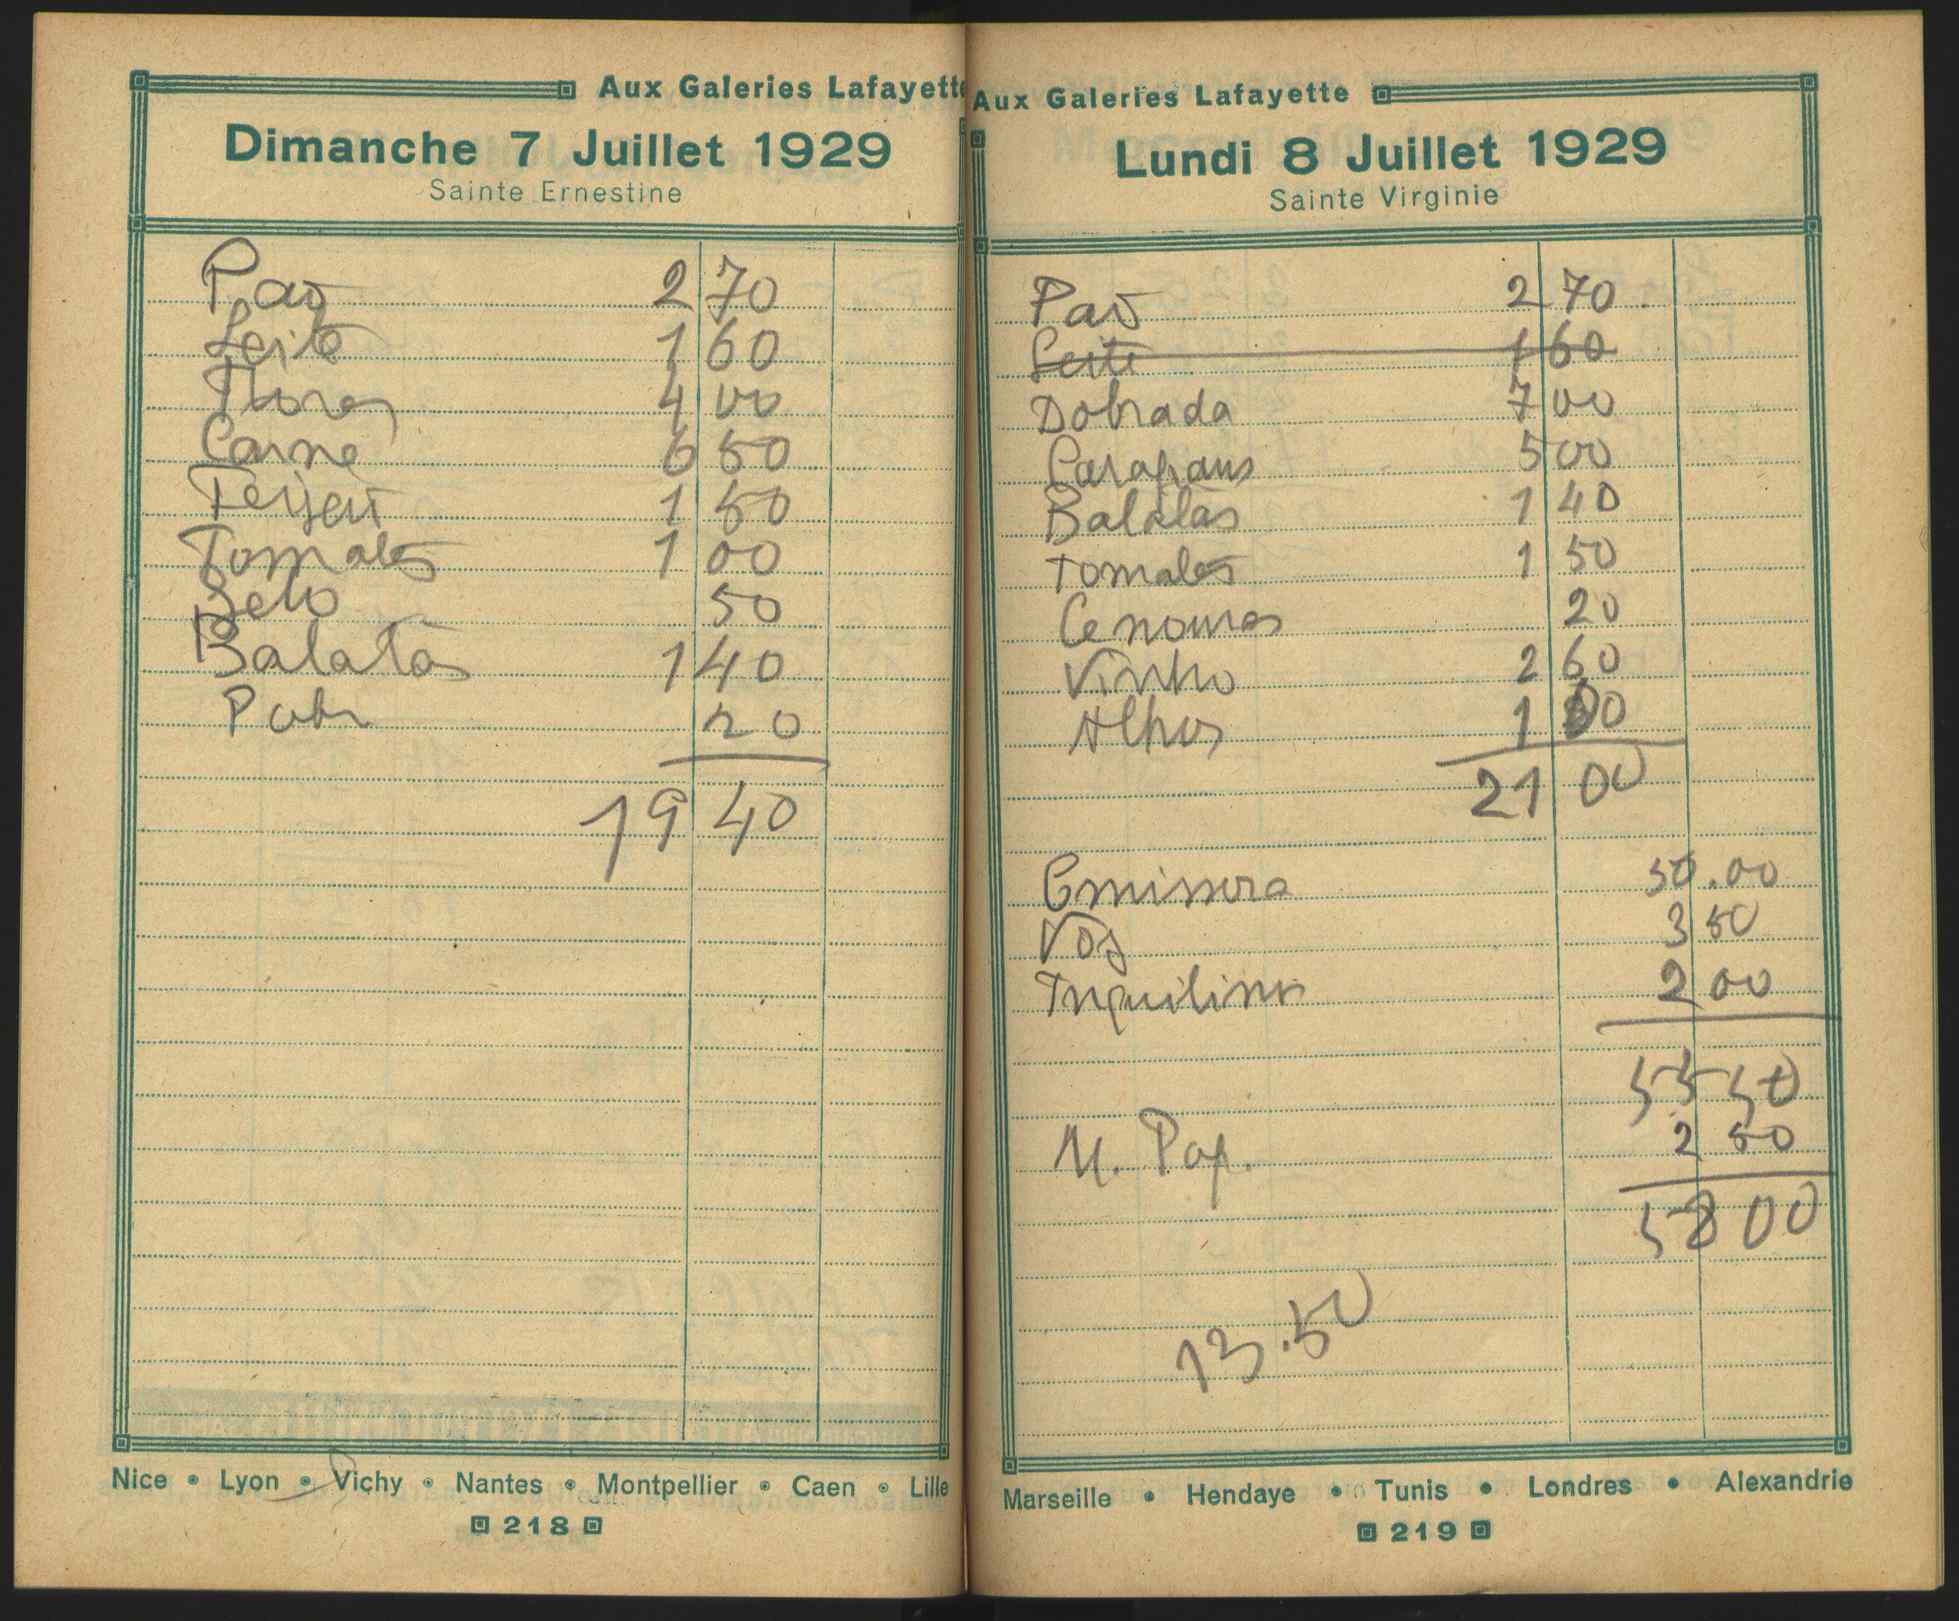 Aux Galeries Lafayette
Dimanche 7 Juillet 1929
Sainte Ernestine
Pão 2 70
Leite 1 60
Flores 4 00
Carne 6 50
Feijão 1 50
Tomates 1 00
Selo 50
Batatas 1 40
20
19 40
Nice • Lyon • Vichy • Nantes • Montpellier • Caen • Lille
218
Aux Galeries Lafayette
Lundi 8 Juillet 1929
Sainte Virginie
Pão 2 70
Leite 1 60
Dobrada 7 00
Carapaus 5 00
Batatas 1 40
Tomates 1 50
Cenouras 20
Vinho 2 60
Alhos 1
21 00
Emissora 50.00
Voz 3 50
Inquilino 2 00
55 50
M. Pap. 2 50
58 00
13.50
Marseille • Hendaye • Tunis • Londres • Alexandrie
219